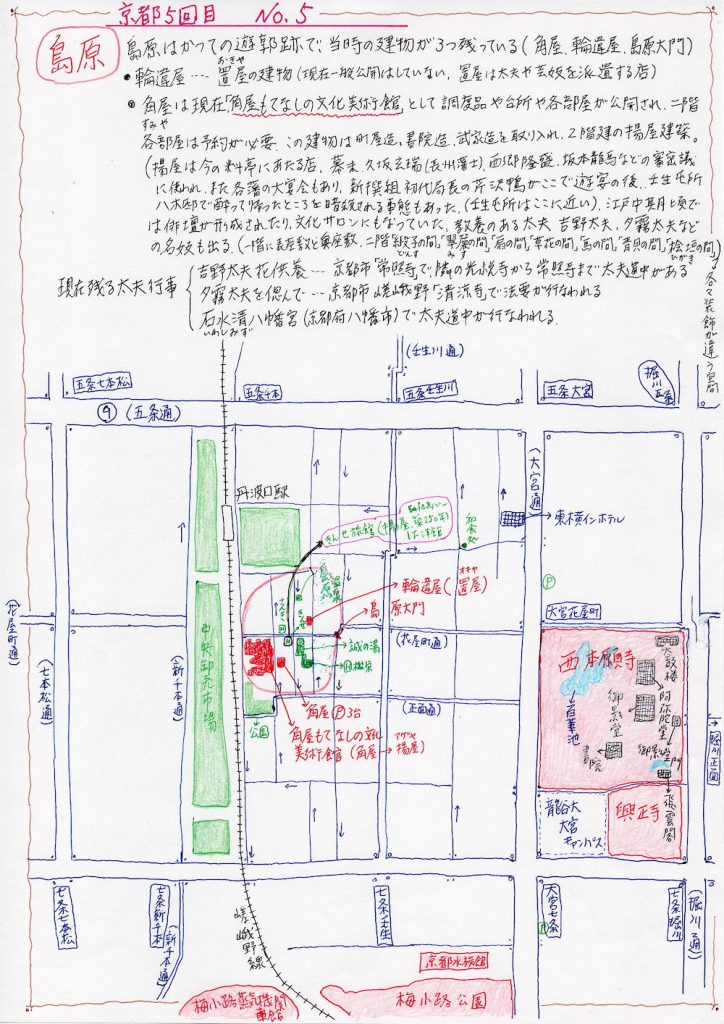 京都5回目 No.5
島原
島原はかつての遊郭跡で当時の建物が3つ残っている(角屋、輪違屋、島原大門)
・輪違屋…置屋の建物(現在一般公開はしていない、置屋は太夫や芸妓を派遣する店)
おきや
・角屋は現在「角屋もてなしの文化美術館」として調度品や台所や各部屋が公開され、二階
すみや
各部屋は予約が必要、この建物は町屋造、書院造、武家造を取り入れ、2階建の揚屋建築。
(揚屋は今の料亭にあたる店、幕末、久坂玄瑞(長州藩士)、西郷隆盛、坂本龍馬などの密議
に使われ、また各藩の大宴会もあり、新撰組初代局長の芹沢鴨がここで遊宴の後、壬生屯所
八木邸で酔って帰ったところを暗殺される事態もあった。(壬生屯所はここに近い)、江戸中期頃では
は俳壇が形成されたり、文化サロンにもなっていた、教養のある太夫 吉野太夫、夕霧太夫など
の名妓も出る。(一階に表座敷と奥座敷、二階「緞子の間」「翠簾の間」「扇の間」「草花の間」「馬の間」「青貝の間」「桧垣の間」
どんす
みす
ひがき
各々装飾が違う間
現在残る太夫行事
吉野太夫花供養…京都市「常照寺」で、隣の光悦寺から常照寺まで太夫道中がある
夕霧太夫を偲んで…京都市嵯峨野「清凉寺」で法要が行なわれる
石水清八幡宮(京都府八幡市)で太夫道中が行なわれる
いわしみず
(壬生川通)
五条七本松
五条千本
五条壬生川
五条大宮
堀川五条
9 (五条通)
(大宮通)
丹波口駅
きんせ旅館(揚屋、築250年)
また洋館
和食処
東横インホテル
P
輪違屋(置屋)
オキヤ
島原大門
大宮花屋町
花屋町通
(七本松通)
(新千本通)
中央卸売市場
島原温泉
誠の湯
H 松栄
(花屋町通)
(正面通)
公園
角屋 P 3台
角屋もてなしの文化
美術館(角屋→揚屋)
アゲヤ
西本願寺
太鼓楼
阿弥陀堂
御影堂
御影堂門
百華池
書院
飛雲閣
堀川正面
龍谷大
大宮
キャンパス
興正寺
七条七本松
七条新千本
(新千本通)
嵯峨野線
七条壬生
大宮七条
七条堀川
(堀川通)
京都水族館
梅小路蒸気機関
車館
梅小路公園